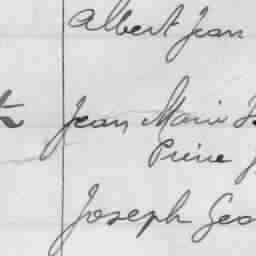 Albert Jean
Jean Marie
Pierre
Joseph Geo